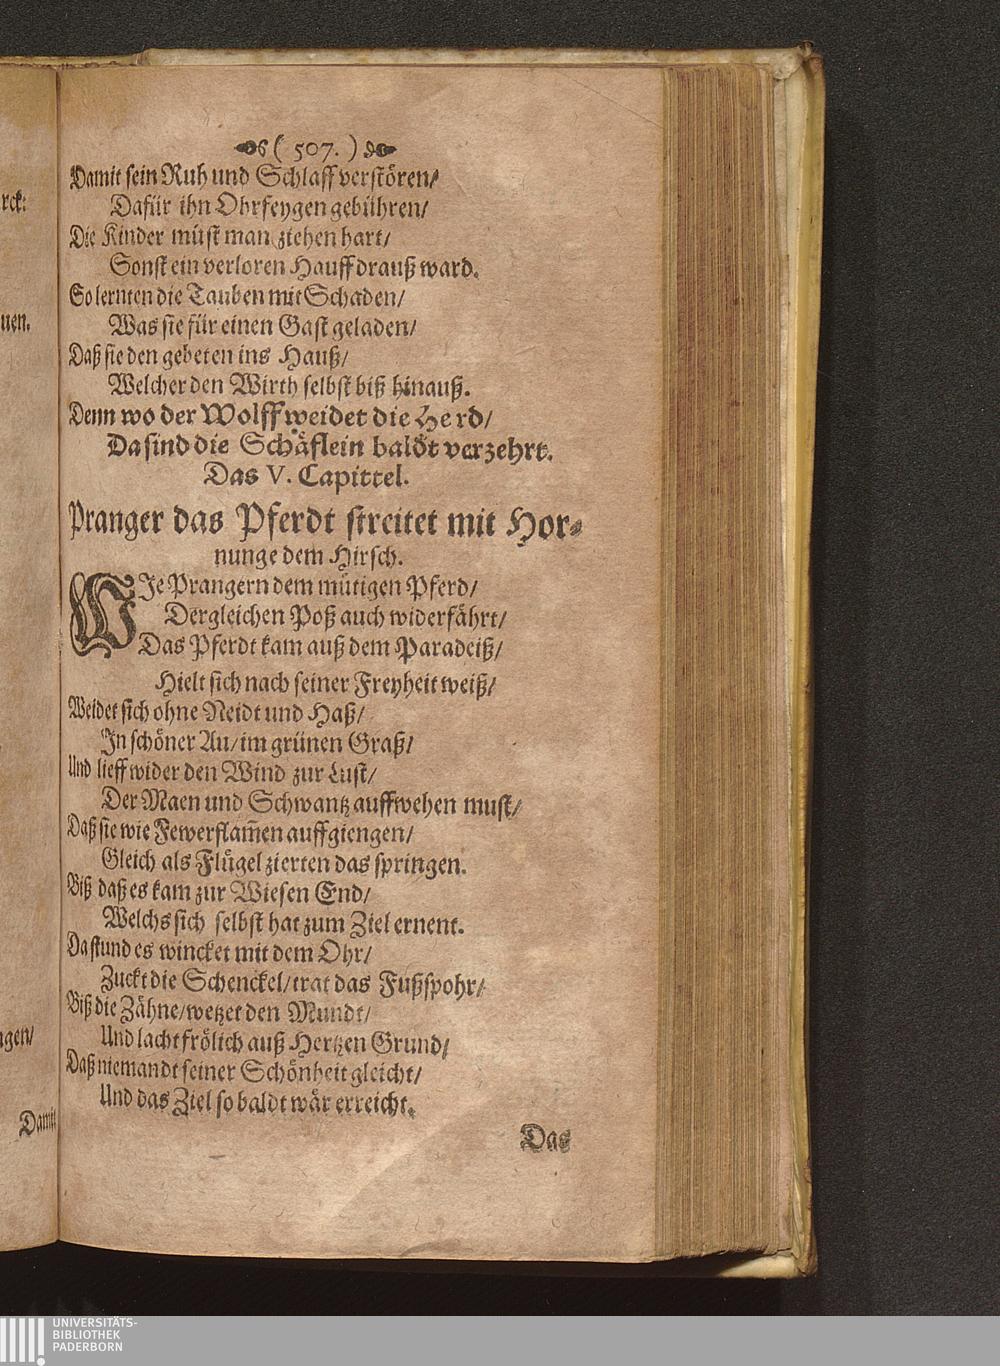 ( 507. )
Damit sein Ruh und Schlaff verstören/
Dafür ihn Ohrfeygen gebühren/
Die Kinder müst man ziehen hart/
Sonst ein verloren Hauff drauß ward.
So lernten die Tauben mit Schaden/
Was sie für einen Gast geladen/
Daß sie den gebeten ins Hauß/
Welcher den Wirth selbst biß hinauß.
Denn wo der Wolff weidet die Herd/
Da sind die Schäflein baldt verzehrt.
Das V. Capittel.
Pranger das Pferdt streitet mit Hor-
nunge dem Hirsch.
WIe Prangern dem mütigen Pferd/
Dergleichen Poß auch widerfährt/
Das Pferdt kam auß dem Paradeiß/
Hielt sich nach seiner Freyheit weiß/
Weidet sich ohne Neidt und Haß/
In schöner Au/ im grünen Graß/
Und lieff wider den Wind zur Lust/
Der Maen und Schwantz auffwehen must/
Daß sie wie Fewerflam̃en auffgiengen/
Gleich als Flügel zierten das springen.
Biß daß es kam zur Wiesen End/
Welchs sich selbst hat zum Ziel ernent.
Da stund es wincket mit dem Ohr/
Zuckt die Schenckel/ trat das Fußspohr/
Biß die Zähne/ wetzet den Mundt/
Und lacht frölich auß Hertzen Grund/
Daß niemandt seiner Schönheit gleicht/
Und das Ziel so baldt wär erreicht.
Das
rck:
uen.
gen/
Damit
UNIVERSITÄTS-
BIBLIOTHEK
PADERBORN